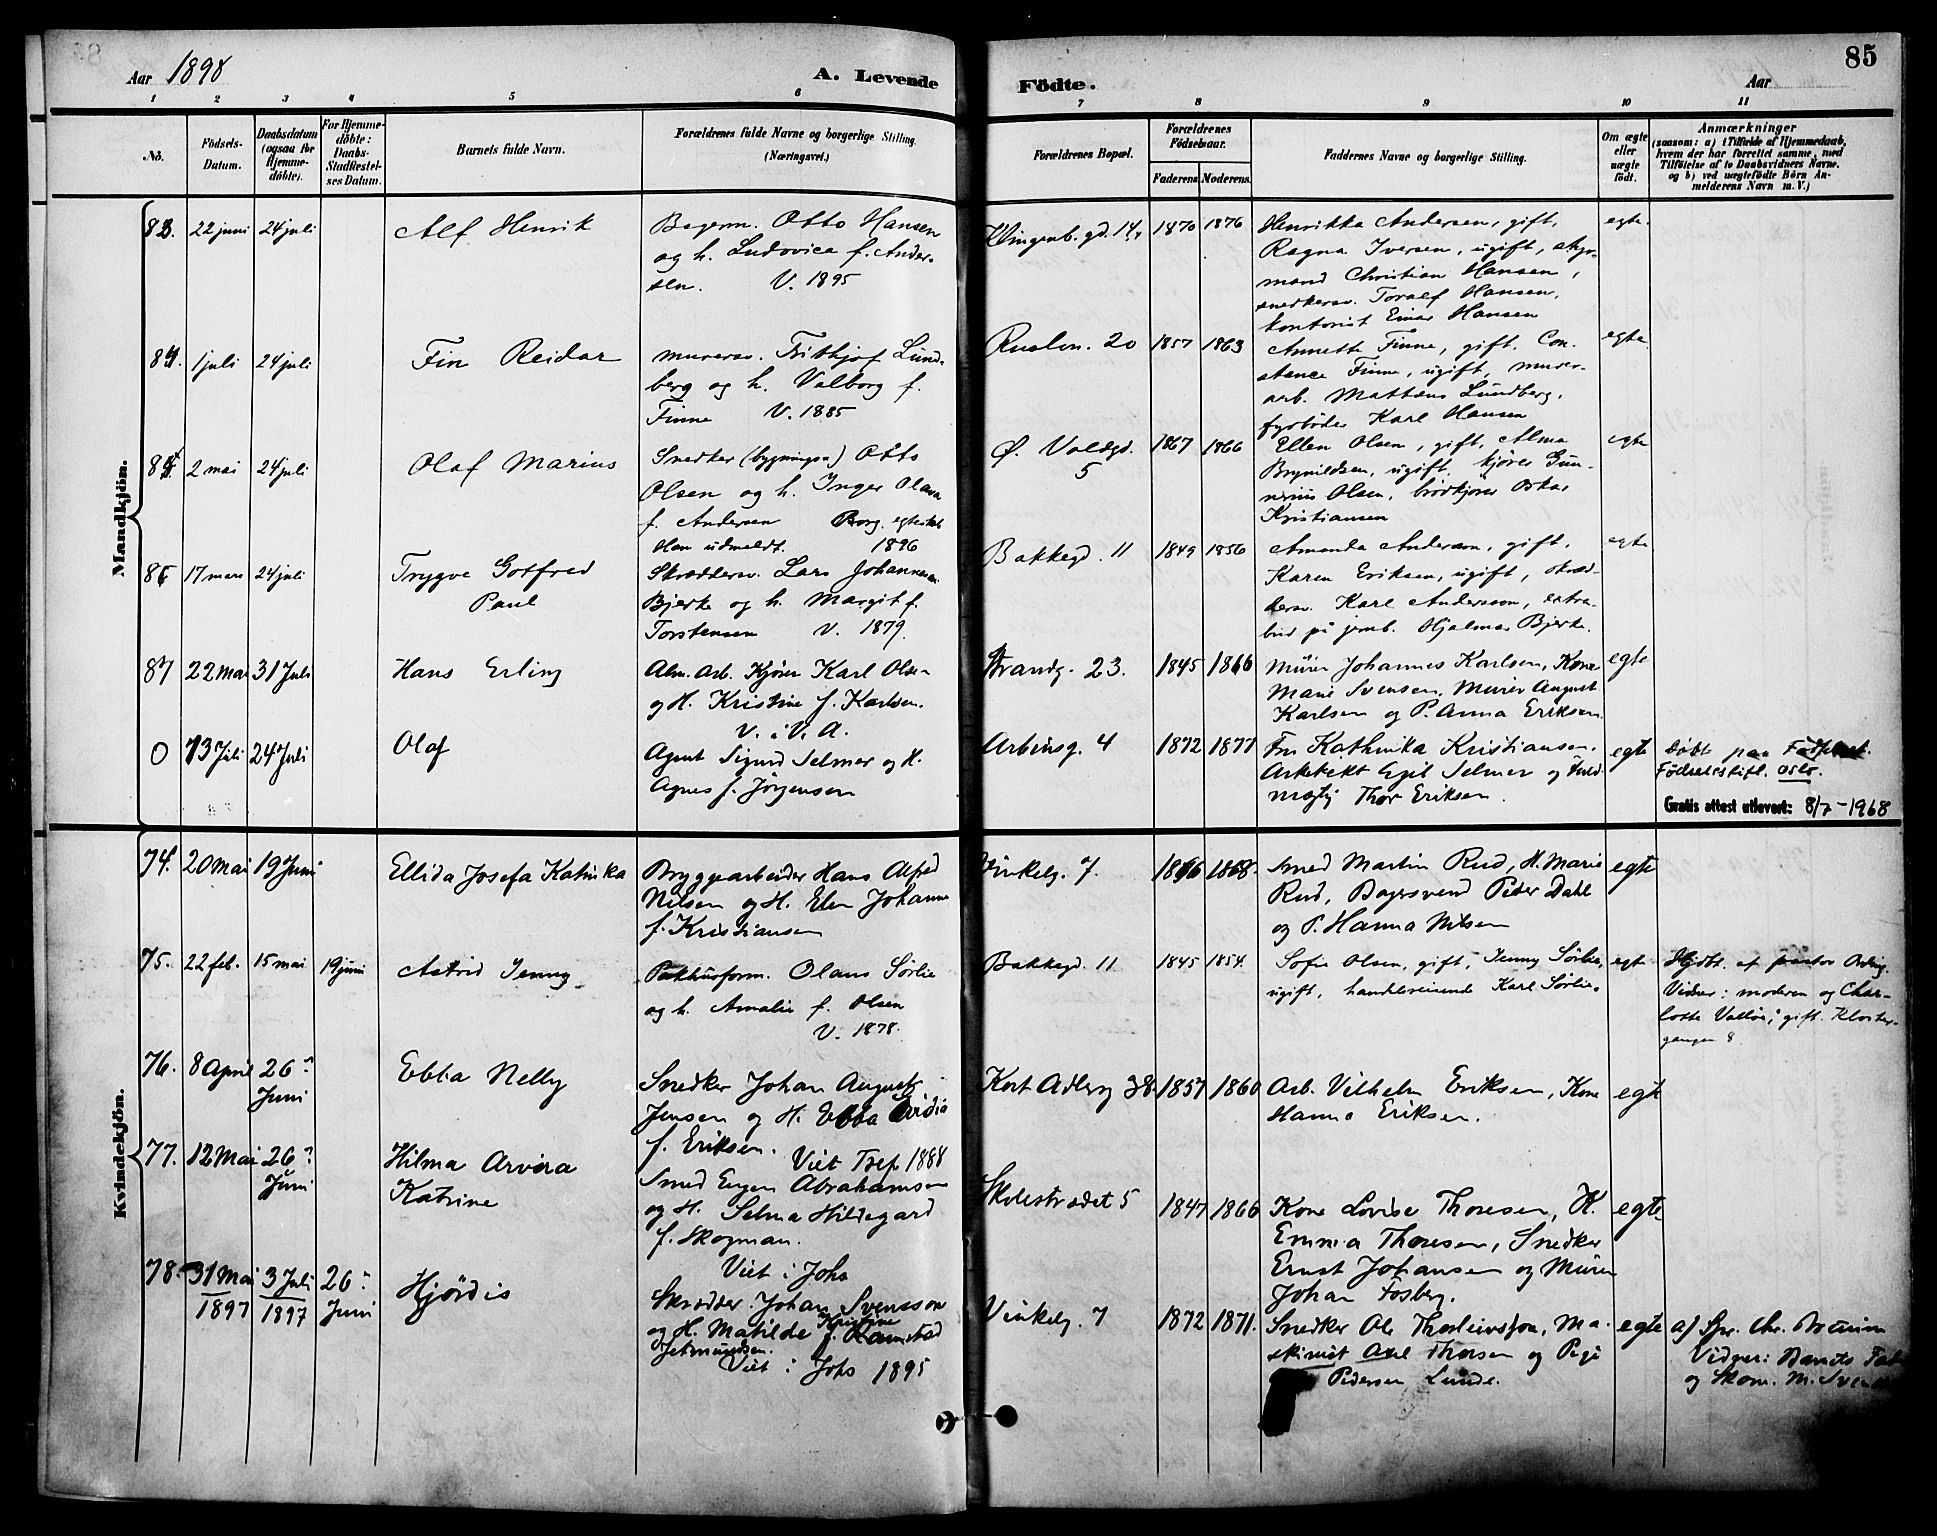 85
Aar 1898
A. Levende
Födte.
Aar
1 2 3 4 5 6 7 8 9 10 11
No.
Födsels-
Datum.
Daabsdatum
(ogsaa for
Hjemme-
döbte).
For Hjemme-
döbte:
Daabs-
Stadfæstel-
ses Datum.
Barnets fulde Navn.
Forældrenes fulde Navne og borgerlige Stilling.
(Næringsvei.)
Forældrenes Bopæl.
Forældrenes
Födselsaar.
Faderens. Moderens.
Faddernes Navne og borgerlige Stilling.
Om ægte
eller
uægte
födt.
Anmærkninger
(saasom: a) i Tilfælde af Hjemmedaab,
hvem der har forrettet samme, med
Tilföielse af to Daabsvidners Navne,
og b) ved uægtefödte Börn An-
melderens Navn m. V.)
Mandkjön.
83. 22 juni 24 juli Alf Henrik
Bagerm. Otto Hansen
og h. Ludovica f. Ander-
sen. V. 1895
Klingenb. gd. 14 1870 1876
Henrikka Andersen, gift,
Ragna Iversen, ugift, styr-
mand Christian Hansen,
snedkersv. Toralf Hansen,
kontorist Einar Hansen
egte
84. 1 juli 24 juli Fin Reidar
Murersv. Frithjof Lund-
berg og h. Valborg f.
Finne V. 1885
Ruslm. 20 1857 1863
Annette Finne, gift. Con-
stance Finne, ugift, murer-
arb. Mattæus Lundberg,
fyrbøder Karl Hansen
egte
85 2 mai 24 juli Olaf Marius
Snedker (bygningss) Otto
Olsen og h. Inger Olava
f. Andersen Borg. egteskab
Han udmeldt. 1896
Ø. Voldgd.
5
1867 1866
Ellen Olsen, gift, Alma
Brynildsen, ugift, kjører Gun-
nerius Olsen, brødkjører Oskar
Kristiansen
egte
86 17 mars 24 juli Trygve Gotfred
Paul
Skræddersv. Lars Johannesen
Bjerke og h. Margit f.
Torstensen V. 1879.
Bakkegd. 11 1849 1856
Amanda Andersen, gift,
Karen Eriksen, ugift, skræd-
dersv. Karl Anderson, extra-
bud på jernb. Hjalmar Bjerke.
egte
87 22 Mai 31 Juli Hans Erling
Alm. Arb. Kjører Karl Olsen
og H. Kristine f. Karlsen.
V. i V. A.
Strandg. 23. 1845 1866
Murer Johannes Karlsen, Kone
Marie Svensen, Murer August
Karlsen og P. Anna Eriksen
egte
0 13 Juli 24 Juli Olaf
Agent Sigurd Selmer og H.
Agnes f. Jørgensen
Arbinsg. 4 1872 1877
Fru Kathinka Kristiansen,
Arkitekt Egil Selmer og Fuld-
mægtig Thor Eriksen.
egte
Døbt paa
Fødselsstift. Oslo.
Gratis attest utlevert: 8/7-1968
Kvindekjön.
74. 20 Mai 19 Juni Ellida Josefa Katinka
Bryggearbeider Hans Alfred
Nilsen og H. Elen Johanne
f. Kristiansen
Vinkelg. 7. 1866 1868.
Smed Martin Rud, H. Marie
Rud, Bagersvend Peder Dahl
og P. Hanna Nilsen
egte
75. 22 feb. 15 mai 19 juni Astrid Jenny
Pakhusform. Olaus Sørlie
og h. Amalie f. Olsen
V. 1878.
Bakkegd. 11 1845 1854.
Sofie Olsen, gift, Jenny Sørlie,
ugift, handelsreisende Karl Sørlie.
egte
Hjdbt. af pastor Arding.
Vidner: moderen og Char-
lotte Valløe, gift. Kloster-
gangen 8
76. 8 April 26 Juni Ebba Nelly
Snedker Johan August
Jensen og H. Ebba Ovidia
f. Eriksen.
Viet Tref. 1888
Kort Adlerg 38. 1857 1860
Arb. Vilhelm Eriksen, Kone
Hanna Eriksen.
egte
77. 12 Mai 26 Juni Hilma Arvida
Katrine
Smed Eugen Abrahamsen
og H. Selma Hildegard
f. Skogman.
Viet i Johs
Skolestrædet 5 1847 1866
Kone Lovise Thoresen, H.
Emma Thoresen, Snedker
Ernst Johansen og Murer
Johan Fosberg.
egte
78. 31 Mai 1897 3 Juli 1897 26 Juni Hjørdis
Skrædder Johan Svensson
og H. Matilde Kristine f. Ramstad
Viet i Johs 1895
Vinkelg. 7 1872 1871.
Snedker Ole Thorleivsson, Ma-
skinist Axel Thorsen og Pige
Pedersen Lunde.
egte
a) Spr. Chr. Bruun
Vidner: Barnets
og Skom. M.